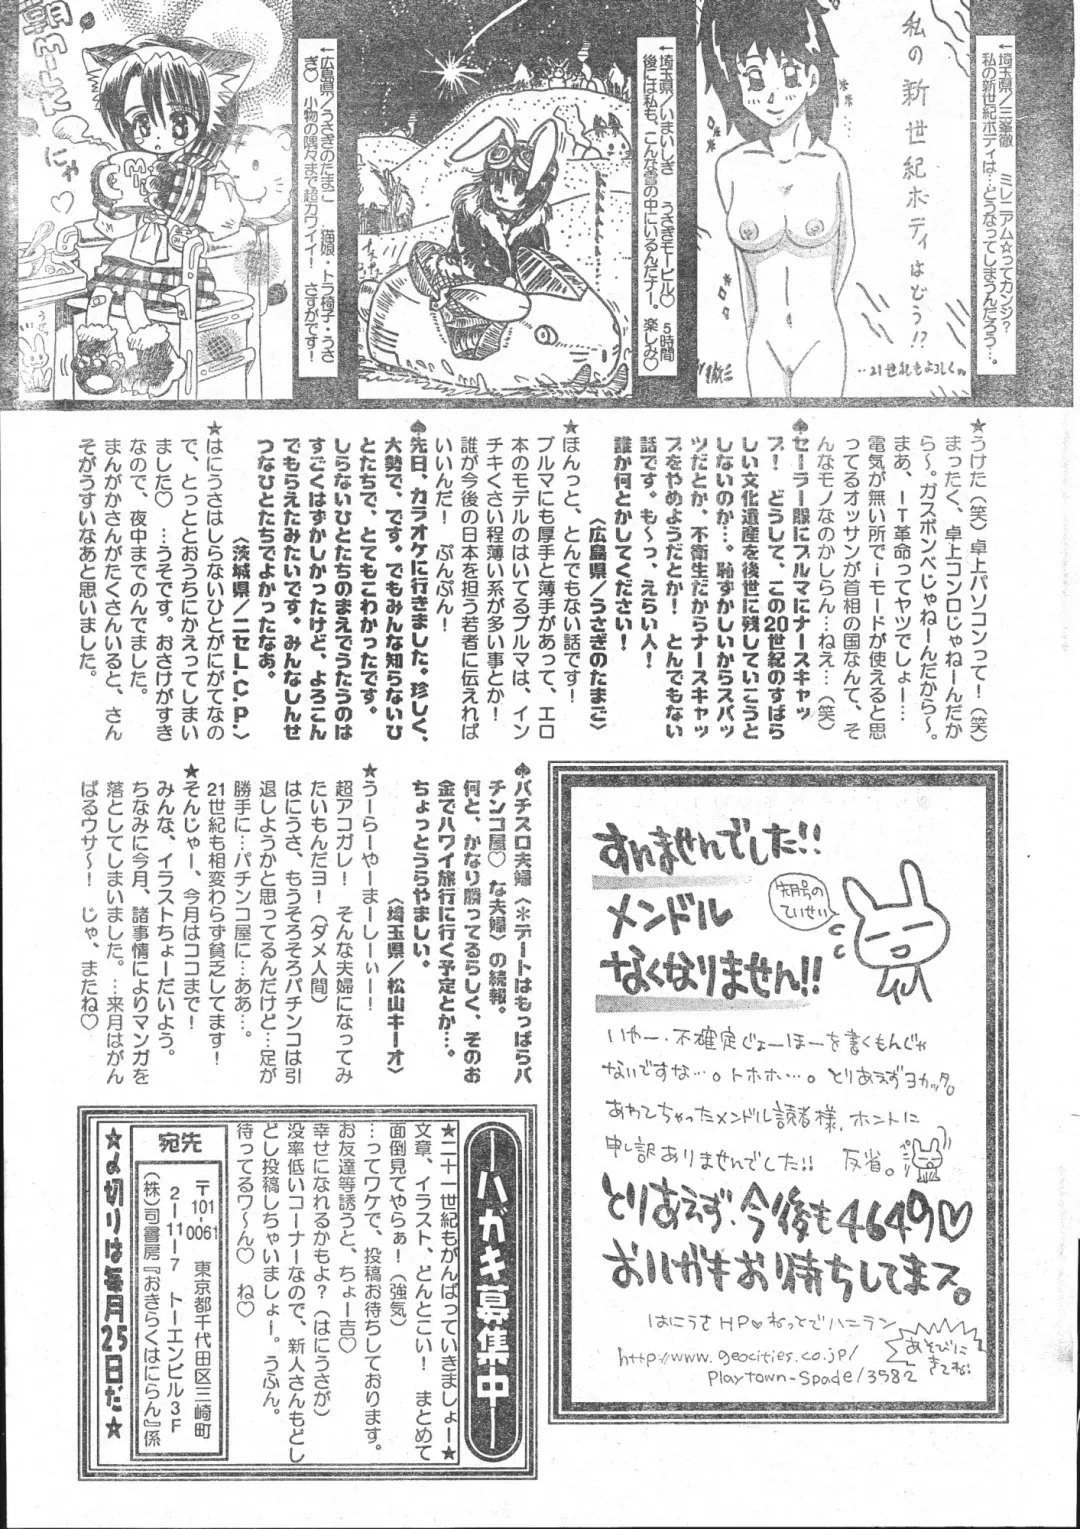 ←埼玉県/三峯徹
ミレニアム☆ってカンジ?
私の新世紀ボディは…どうなってしまうんだろう…。
私の新世紀ボディはどう!?
…21世紀もよろしく
←埼玉県/いまいしき
うさぎモービル♡ 5時間
後には私も、こんな雪の中にいるんだナー。楽しみ♡
←広島県/うさぎのたまご
猫娘・トラ椅子・うさ
ぎ♡ 小物の隅々まで超カワイイ! さすがです!
にゃ♡
★うけた(笑)卓上パソコンって!(笑)
まったく、卓上コンロじゃねーんだか
ら〜。ガスボンベじゃねーんだから〜。
まあ、IT革命ってヤツでしょー…
電気が無い所でiモードが使えると思
ってるオッサンが首相の国なんて、そ
んなモノなのかしらん…ねえ…(笑)
♠セーラー服にブルマにナースキャッ
プ! どうして、この20世紀のすばら
しい文化遺産を後世に残していこうと
しないのか…。恥ずかしいからスパッ
ツだとか、不衛生だからナースキャッ
プをやめようだとか! とんでもない
話です。も〜っ、えらい人!
誰か何とかしてください!
〈広島県/うさぎのたまご〉
★ほんっと、とんでもない話です!
ブルマにも厚手と薄手があって、エロ
本のモデルのはいてるブルマは、イン
チキくさい程薄い系が多い事とか!
誰が今後の日本を担う若者に伝えれば
いいんだ! ぷんぷん!
♠先日、カラオケに行きました。珍しく、
大勢で、です。でもみんな知らないひ
とたちで、とてもこわかったです。
しらないひとたちのまえでうたうのは
すごくはずかしかったけど、よろこん
でもらえたみたいです。みんなしんせ
つなひとたちでよかったなあ。
〈茨城県/ニセL.C.P〉
★はにうさはしらないひとがにがてなの
で、とっととおうちにかえってしまい
ました♡ …うそです。おさけがすき
なので、夜中までのんでました。
まんがかさんがたくさんいると、さん
そがうすいなあと思いました。
♠パチスロ夫婦〈※デートはもっぱらパ
チンコ屋♡な夫婦〉の続報。
何と、かなり勝ってるらしく、そのお
金でハワイ旅行に行く予定とか…。
ちょっとうらやましい。
〈埼玉県/松山キーオ〉
★うーらーやーまーしーぃー!
超アコガレ! そんな夫婦になってみ
たいもんだヨ!(ダメ人間)
はにうさ、もうそろそろパチンコは引
退しようかと思ってるんだけど…足が
勝手に…パチンコ屋に…ああ…。
21世紀も相変わらず貧乏してます!
★そんじゃー、今月はココまで!
みんな、イラストちょーだいよう。
ちなみに今月、諸事情によりマンガを
落としてしまいました。…来月はがん
ばるウサ〜! じゃ、またね♡
すいませんでした!!
メンドル
なくなりません!!
先月号の
ていせい
いやー・不確定じょーほーを書くもんじゃ
ないですな…。トホホ…。とりあえずヨカッタ。
あわてちゃったメンドル読者様、ホントに
申し訳ありませんでした!! 反省。
ペコリ
とりあえず・今後も4649♡
おハガキお待ちしてまス。
はにうさHP♡ねっとでハニラン
http://www.geocities.co.jp/
Playtown-Spade/3582
あそびに
きてね♡
ハガキ募集中
★二十一世紀もがんばっていきましょー★
文章、イラスト、どんとこい! まとめて
面倒見てやらぁ!(強気)
…ってワケで、投稿お待ちしております。
お友達等誘うと、ちょー吉♡
幸せになれるかもよ?(はにうさが)
没率低いコーナーなので、新人さんもどし
どし投稿しちゃいましょー。うふん。
待ってるワ〜ん♡ ね♡
宛先
〒101-0061 東京都千代田区三崎町
2-11-7 トーエンビル3F
(株)司書房『おきらくはにらん』係
★〆切りは毎月25日だ★